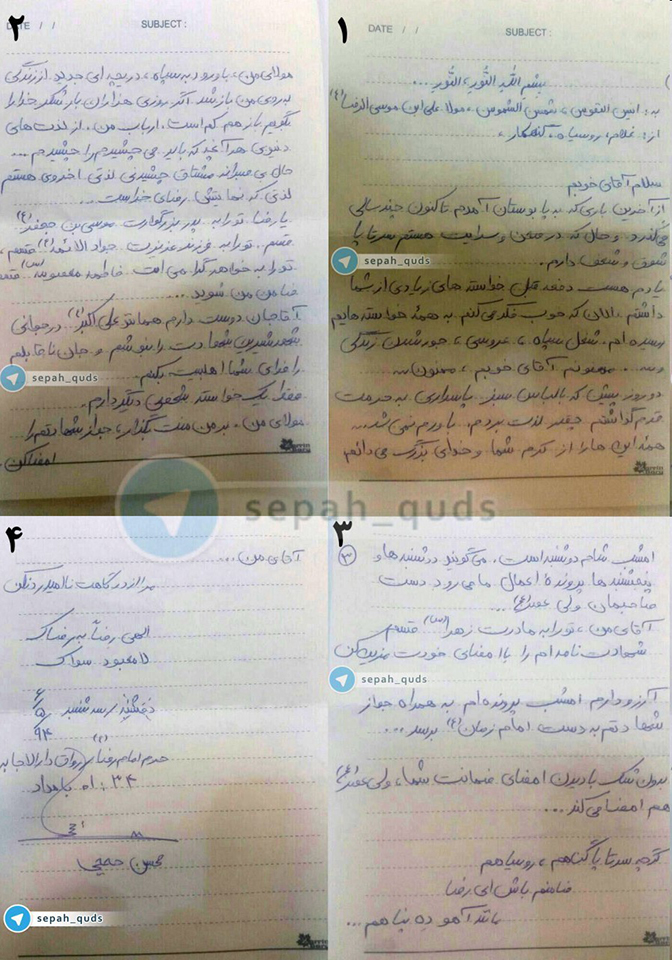 ۱
DATE / / SUBJECT :
بسم الله النّور، النّور ...
به: انیس النفوس، شمس الشموس، مولا علی ابن موسی الرضا (ع)
از: غلام، روسیاه، گنهکار،
سلام آقای خوبم
از آخرین باری که به پابوستان آمدم تاکنون چند سالی
می‌گذرد و حال که در صحن و سرایت هستم سرتا پا
شوق و شعف دارم.
یادم هست دفعه قبل خواسته های زیادی از شما
داشتم. الان که خوب فکر می‌کنم به همهٔ خواسته هایم
رسیده ام. شغل سپاه، عروسی، جور شدن زندگی
و ... ممنونم آقای خوبم، ممنون ...
دو روز پیش که با لباس سبز پاسداری به حرمت
قدم گذاشتم چقدر لذت بردم. باورم نمی شد ...
همهٔ این ها را از کرم شما و خدای بزرگ می دانم
۲
DATE / / SUBJECT :
مولای من، با ورود به سپاه، دریچه ای جدید از زندگی
به روی من باز شد. اگر روزی هزاران بار شکر خدا را
بگویم باز هم کم است. ارباب من، از لذت های
دنیوی هر آنچه که باید می چشیدم را چشیدم ...
حال بی صبرانه مشتاق چشیدن لذتی اخروی هستم
لذتی که نهایتش رضای خداست ...
یا رضا تو را به پدر بزرگوارت موسی بن جعفر (ع)
قسم، تو را به فرزند عزیزت جواد الائمه (ع) قسم،
تو را به خواهر گرامی ات فاطمه معصومه (س) قسم
ضامن من شوید ...
آقا جان دوست دارم همانند علی اکبر (ع) در جوانی
شهد شیرین شهادت را بنوشم و جان ناقابلم
را فدای شما اهلبیت بکنم.
فقط یک خواسته شخصی دیگر دارم.
مولای من، بر من منت بگذار، جواز شهادتم را
امضا کن.
۳
(۳) امشب شام دوشنبه است. می گویند دوشنبه ها و
پنجشنبه ها پروندهٔ اعمال ما می رود دست
صاحبمان ولی عصر (عج) ...
آقای من، تو را به مادرت زهرا (س) قسم
شهادت نامه ام را با امضای خودت مزین کن
آرزو دارم امشب پرونده ام به همراه جواز
شهادتم به دست امام زمان (ع) برسد ...
بدون شک با دیدن امضای ضمانت شما، ولی عصر (عج)
هم امضا می کند ...
گرچه سرتا پا گناهم، روسیاهم
ضامنم باش ای رضا
باتد آمو ده پناهم ...
۴
آقای من ...
مرا از درگاهت ناامید رد نکن
الهی رضاً به رضائک
لا معبود سواک
سه شنبه
۶/۵/۹۴
حرم امام رضا (ع) رواق دارالاجابه
۰۱:۳۴ بامداد
محسن حججی
sepah_quds
sepah_quds
sepah_quds
sepah_quds
sepah_quds